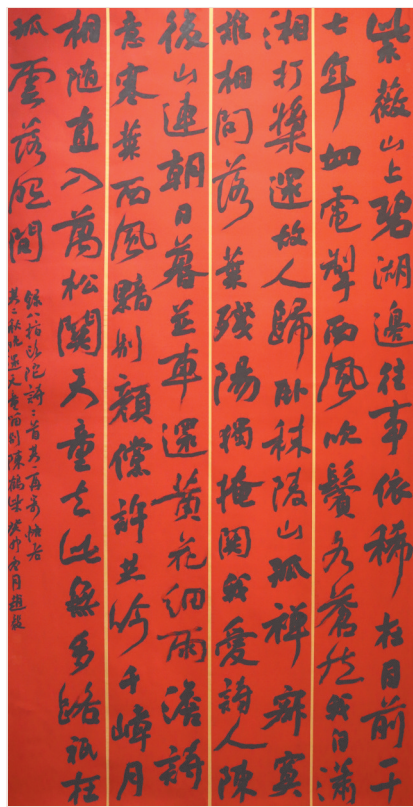 紫薇山上碧湖邊往事依稀在目前一十
七年如電掣西風吹鬢各蒼然我自瀟
湘打槳還故人歸臥秣陵山孤禪寂寞
誰相問落葉殘陽獨掩關我愛詩人陳
後山連朝日暮並車還黃花細雨澹詩
意寒葉西風黯別顏儻許共吟千嶂月
相隨直入萬松關天童去此無多路祇在
孤雲落照間
錄八指頭陀詩三首其一再寄悟老
其二秋晚還天童留別陳鶴柴癸卯月趙